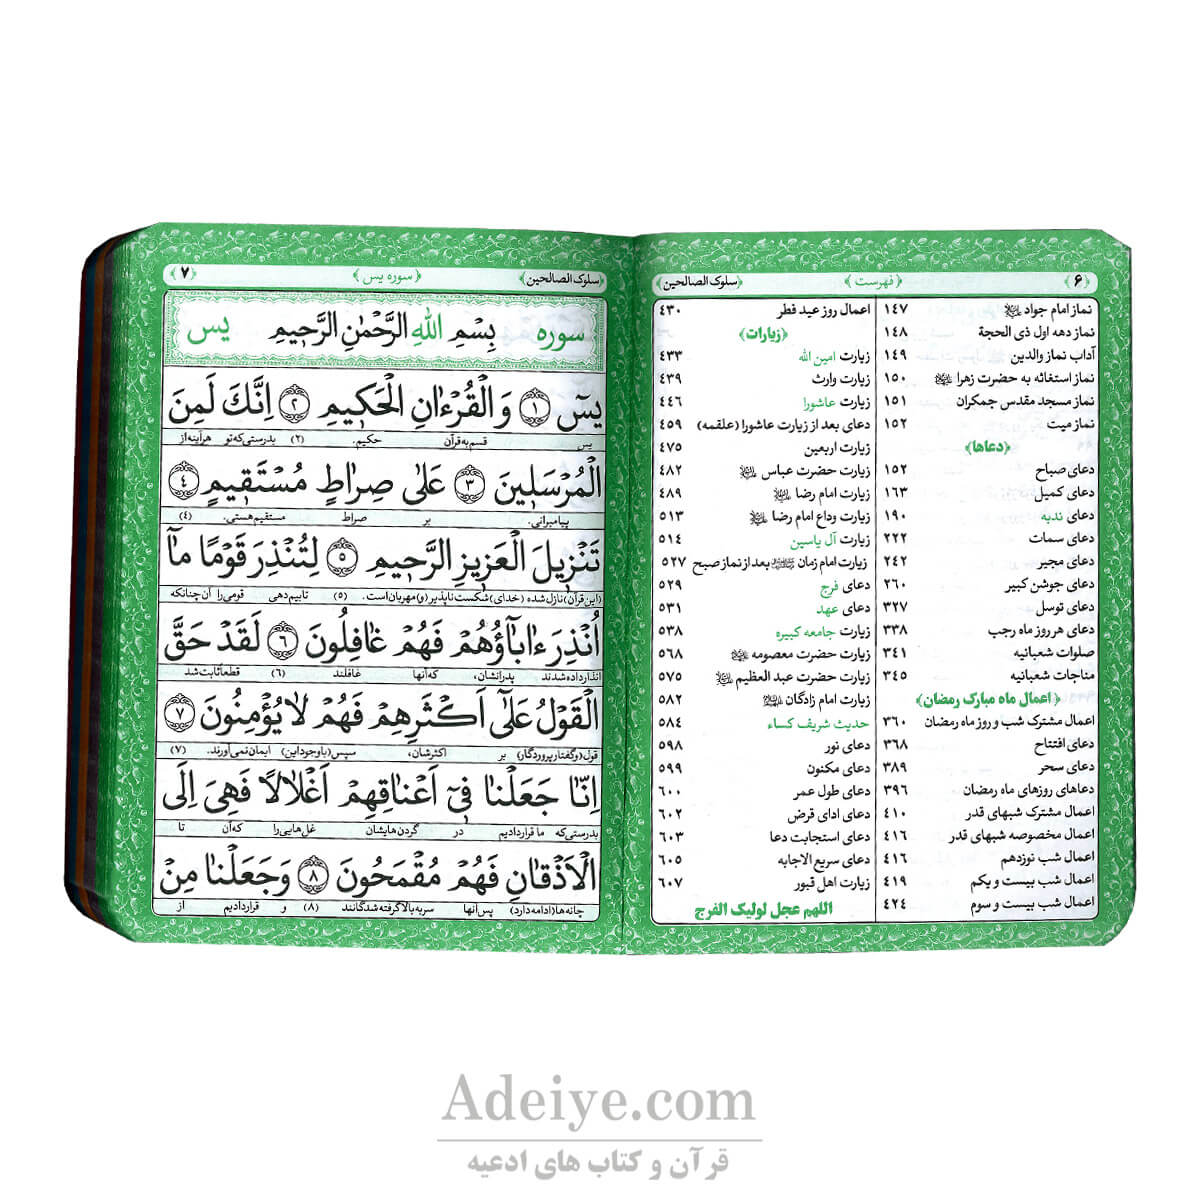 ﴿ ۶ ﴾ ﴿ فهرست ﴾ ﴿سلوک الصالحین﴾
نماز امام جواد ۱۴۷
نماز دهه اول ذی الحجة ۱۴۸
آداب نماز والدین ۱۴۹
نماز استغاثه به حضرت زهرا ۱۵۰
نماز مسجد مقدس جمکران ۱۵۱
نماز میت ۱۵۲
﴿دعاها﴾
دعای صباح ۱۵۲
دعای کمیل ۱۶۳
دعای ندبه ۱۹۰
دعای سمات ۲۲۲
دعای مجیر ۲۴۲
دعای جوشن کبیر ۲۶۰
دعای توسل ۳۲۷
دعای هر روز ماه رجب ۳۳۸
صلوات شعبانیه ۳۴۱
مناجات شعبانیه ۳۴۵
﴿ اعمال ماه مبارک رمضان﴾
اعمال مشترک شب و روز ماه رمضان ۳۶۰
دعای افتتاح ۳۶۸
دعای سحر ۳۸۹
دعاهای روزهای ماه رمضان ۳۹۶
اعمال مشترک شبهای قدر ۴۱۰
اعمال مخصوصه شبهای قدر ۴۱۶
اعمال شب نوزدهم ۴۱۶
اعمال شب بیست و یکم ۴۱۹
اعمال شب بیست و سوم ۴۲۴
اعمال روز عید فطر ۴۳۰
﴿زیارات﴾
زیارت امین الله ۴۳۳
زیارت وارث ۴۳۹
زیارت عاشورا ۴۴۶
دعای بعد از زیارت عاشورا (علقمه) ۴۵۹
زیارت اربعین ۴۷۵
زیارت حضرت عباس ۴۸۲
زیارت امام رضا ۴۸۹
زیارت وداع امام رضا ۵۱۳
زیارت آل یاسین ۵۱۴
زیارت امام زمان بعد از نماز صبح ۵۲۷
دعای فرج ۵۲۹
دعای عهد ۵۳۱
زیارت جامعه کبیره ۵۳۸
زیارت حضرت معصومه ۵۶۸
زیارت حضرت عبد العظیم ۵۷۵
زیارت امام زادگان ۵۸۲
حدیث شریف کساء ۵۸۴
دعای نور ۵۹۸
دعای مکنون ۵۹۹
دعای طول عمر ۶۰۰
دعای ادای قرض ۶۰۲
دعای استجابت دعا ۶۰۳
دعای سریع الاجابه ۶۰۵
زیارت اهل قبور ۶۰۷
اللهم عجل لولیک الفرج
﴿سلوک الصالحین﴾ ﴿ سوره یس ﴾ ﴿ ۷ ﴾
سوره بِسْمِ اللهِ الرَّحْمٰنِ الرَّحیمِ یس
یسٓ ﴿۱﴾ وَالْقُرْءٰانِ الْحَکیمِ ﴿۲﴾ اِنَّكَ لَمِنَ
یس قسم به قرآن حکیم. (۲) بدرستی که تو هرآینه از
الْمُرْسَلینَ ﴿۳﴾ عَلىٰ صِراطٍ مُسْتَقیمٍ ﴿۴﴾
پیامبرانی. بر صراط مستقیم هستی. (۴)
تَنْزیلَ الْعَزیزِ الرَّحیمِ ﴿۵﴾ لِتُنْذِرَ قَوْمًا مٰٓا
(این قرآن) نازل شده (خدای) شکست ناپذیر (و) مهربان است. (۵) تابیم دهی قومی را آن چنانکه
اُنْذِرَ ءٰابٰٓاؤُهُمْ فَهُمْ غٰافِلُونَ ﴿۶﴾ لَقَدْ حَقَّ
انذار داده شدند پدرانشان، که آنها غافلند (۶) قطعا ثابت شد
الْقَوْلُ عَلىٰٓ اَكْثَرِهِمْ فَهُمْ لٰا یُؤْمِنُونَ ﴿۷﴾
قول (و گفتار پروردگار) بر اکثرشان، سپس (با وجود این) ایمان نمی آورند. (۷)
اِنّٰا جَعَلْنٰا فیٓ اَعْنٰاقِهِمْ اَغْلٰالًا فَهِیَ اِلَى
بدرستی که ما قرار دادیم در گردن هایشان غل هایی را که آن تا
الْاَذْقٰانِ فَهُمْ مُقْمَحُونَ ﴿۸﴾ وَجَعَلْنٰا مِنْ
چانه ها (ادامه دارد) پس آنها سر به بالا گرفته شدگانند (۸) و قرار دادیم از
Adeiye.com
قرآن و کتاب های ادعیه